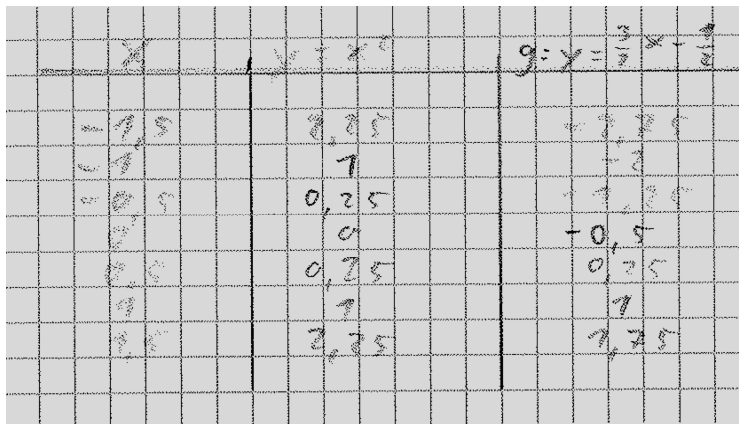 x y = x² g: y = 3/2 x - 1/2
-1,5 2,25 -2,75
-1 1 -2
-0,5 0,25 -1,25
0 0 -0,5
0,5 0,25 0,25
1 1 1
1,5 2,25 1,75